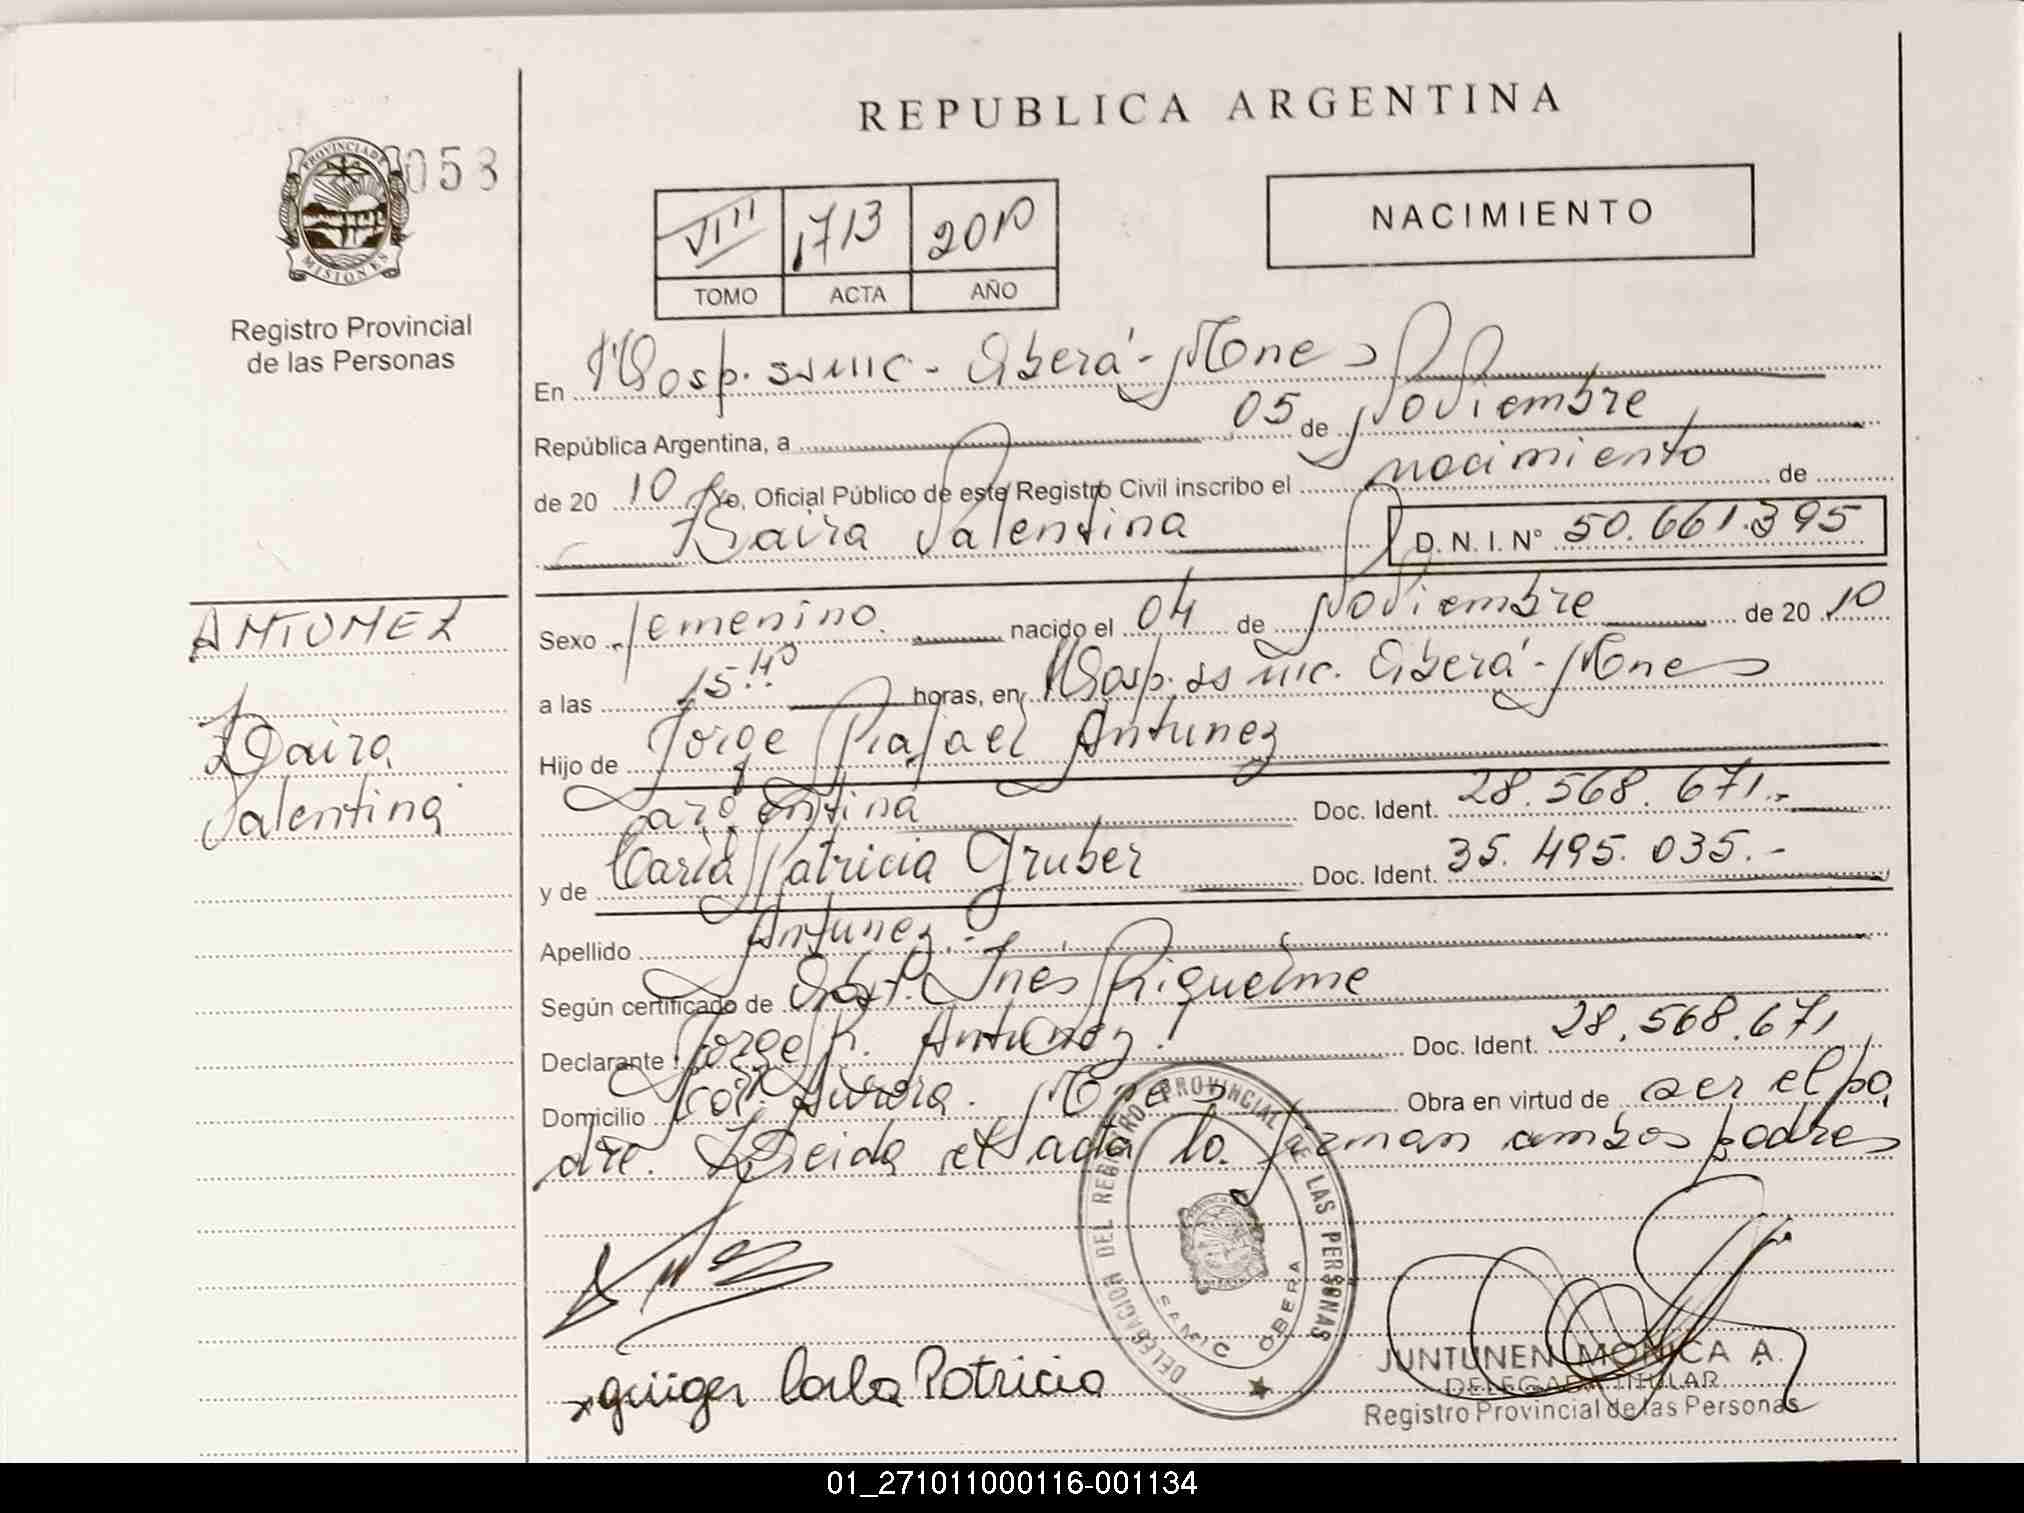 REPUBLICA ARGENTINA
PROVINCIA DE
MISIONES
053
Registro Provincial
de las Personas
VIII 1713 2010
TOMO ACTA AÑO
NACIMIENTO
En Hosp. SSMIC - Oberá - Mnes
República Argentina, a 05 de Noviembre
de 2010 Yo, Oficial Público de este Registro Civil inscribo el nacimiento de
Daira Valentina D. N. I. Nº 50.661.395
ANTUNEZ
Daira
Valentina
Sexo femenino. nacido el 04 de Noviembre de 2010
a las 15:40 horas, en Hosp. SSMIC. Oberá - Mnes
Hijo de Jorge Rafael Antunez
argentina Doc. Ident. 28.568.671.-
y de Carla Patricia Gruber Doc. Ident. 35.495.035.-
Apellido Antunez.-
Según certificado de Obst. Inés Riquelme
Declarante Jorge R. Antunez. Doc. Ident. 28.568.671
Domicilio Col. Aurora. Mnes Obra en virtud de ser el pa
dre. Leida el acta la firman ambos padres
DELEGACION DEL REGISTRO PROVINCIAL DE LAS PERSONAS
SAMIC OBERA
Carla Patricia
JUNTUNEN MONICA A.
DELEGADA TITULAR
Registro Provincial de las Personas
01_271011000116-001134